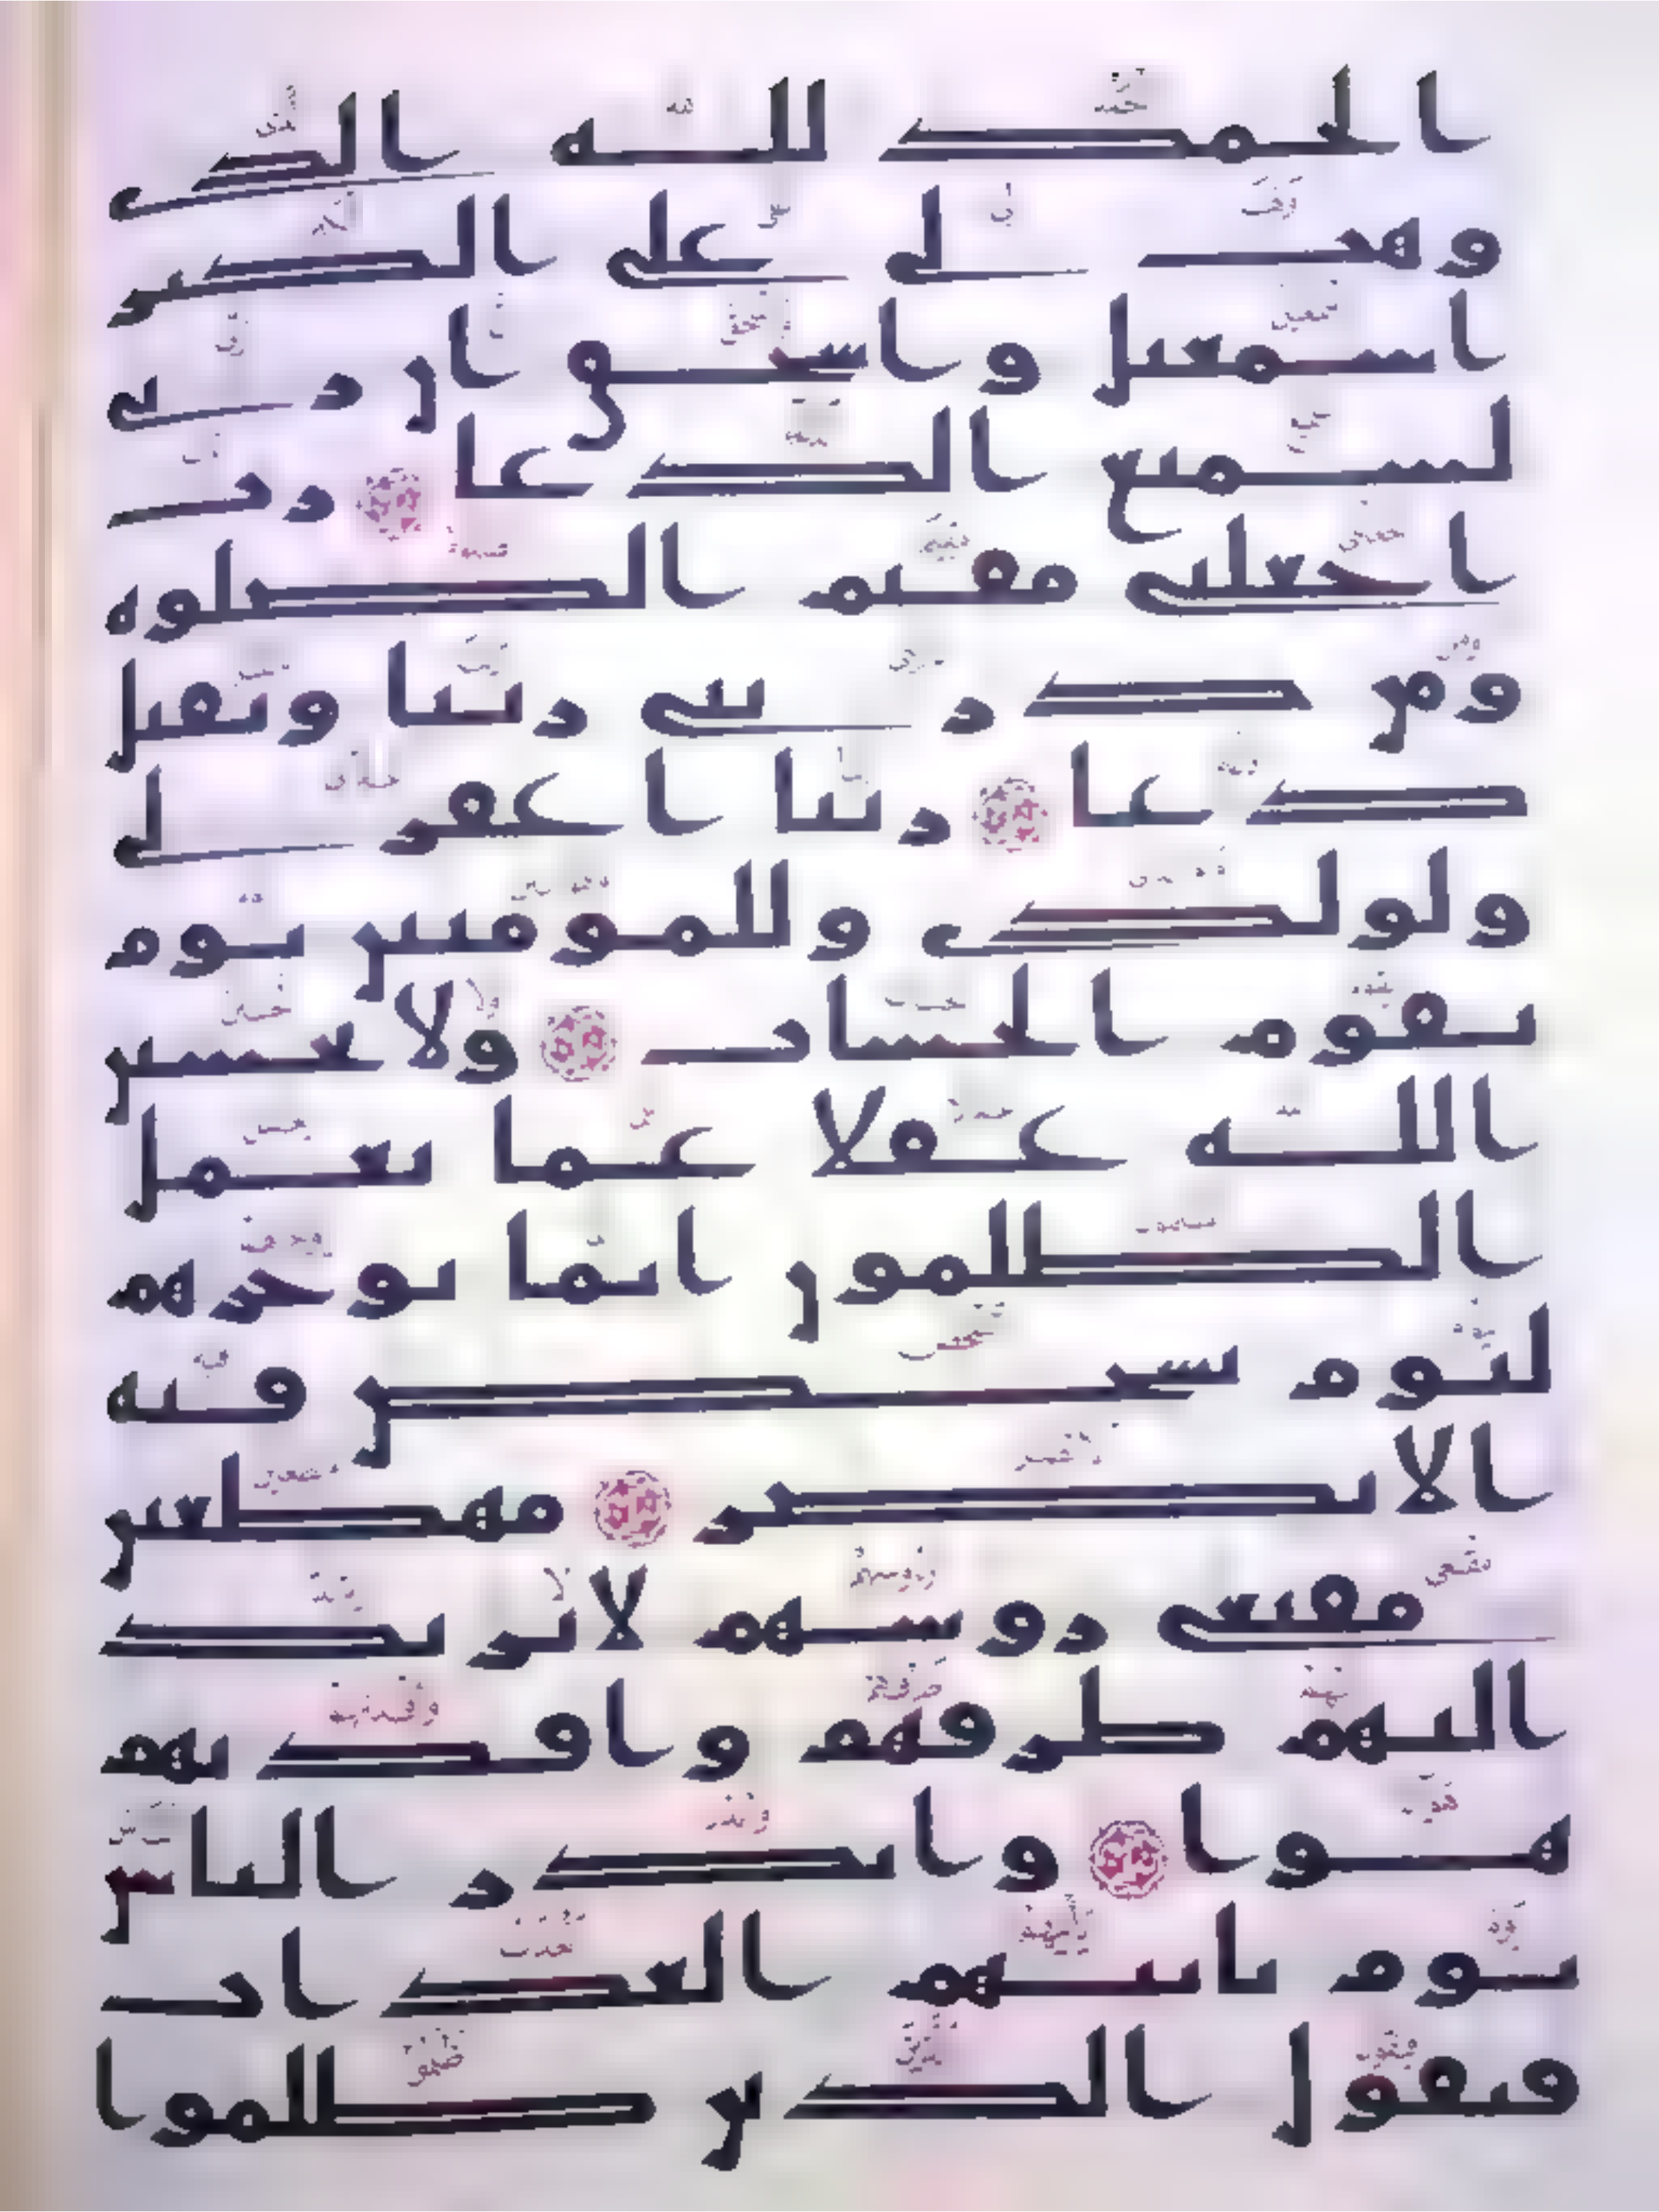 الحمد لله الذى
وهب لى على الكبر
اسمعيل واسحق ان ربى
لسميع الدعا رب
اجعلنى مقيم الصلوه
ومن ذريتى ربنا وتقبل
دعا ربنا اغفر لى
ولولدى وللمومنين يوم
يقوم الحساب ولا تحسبن
الله غفلا عما يعمل
الظلمون انما يوخرهم
ليوم تشخص فيه
الابصر مهطعين
مقنعى روسهم لا يرتد
اليهم طرفهم وافدتهم
هوا وانذر الناس
يوم ياتيهم العذاب
فيقول الذين ظلموا